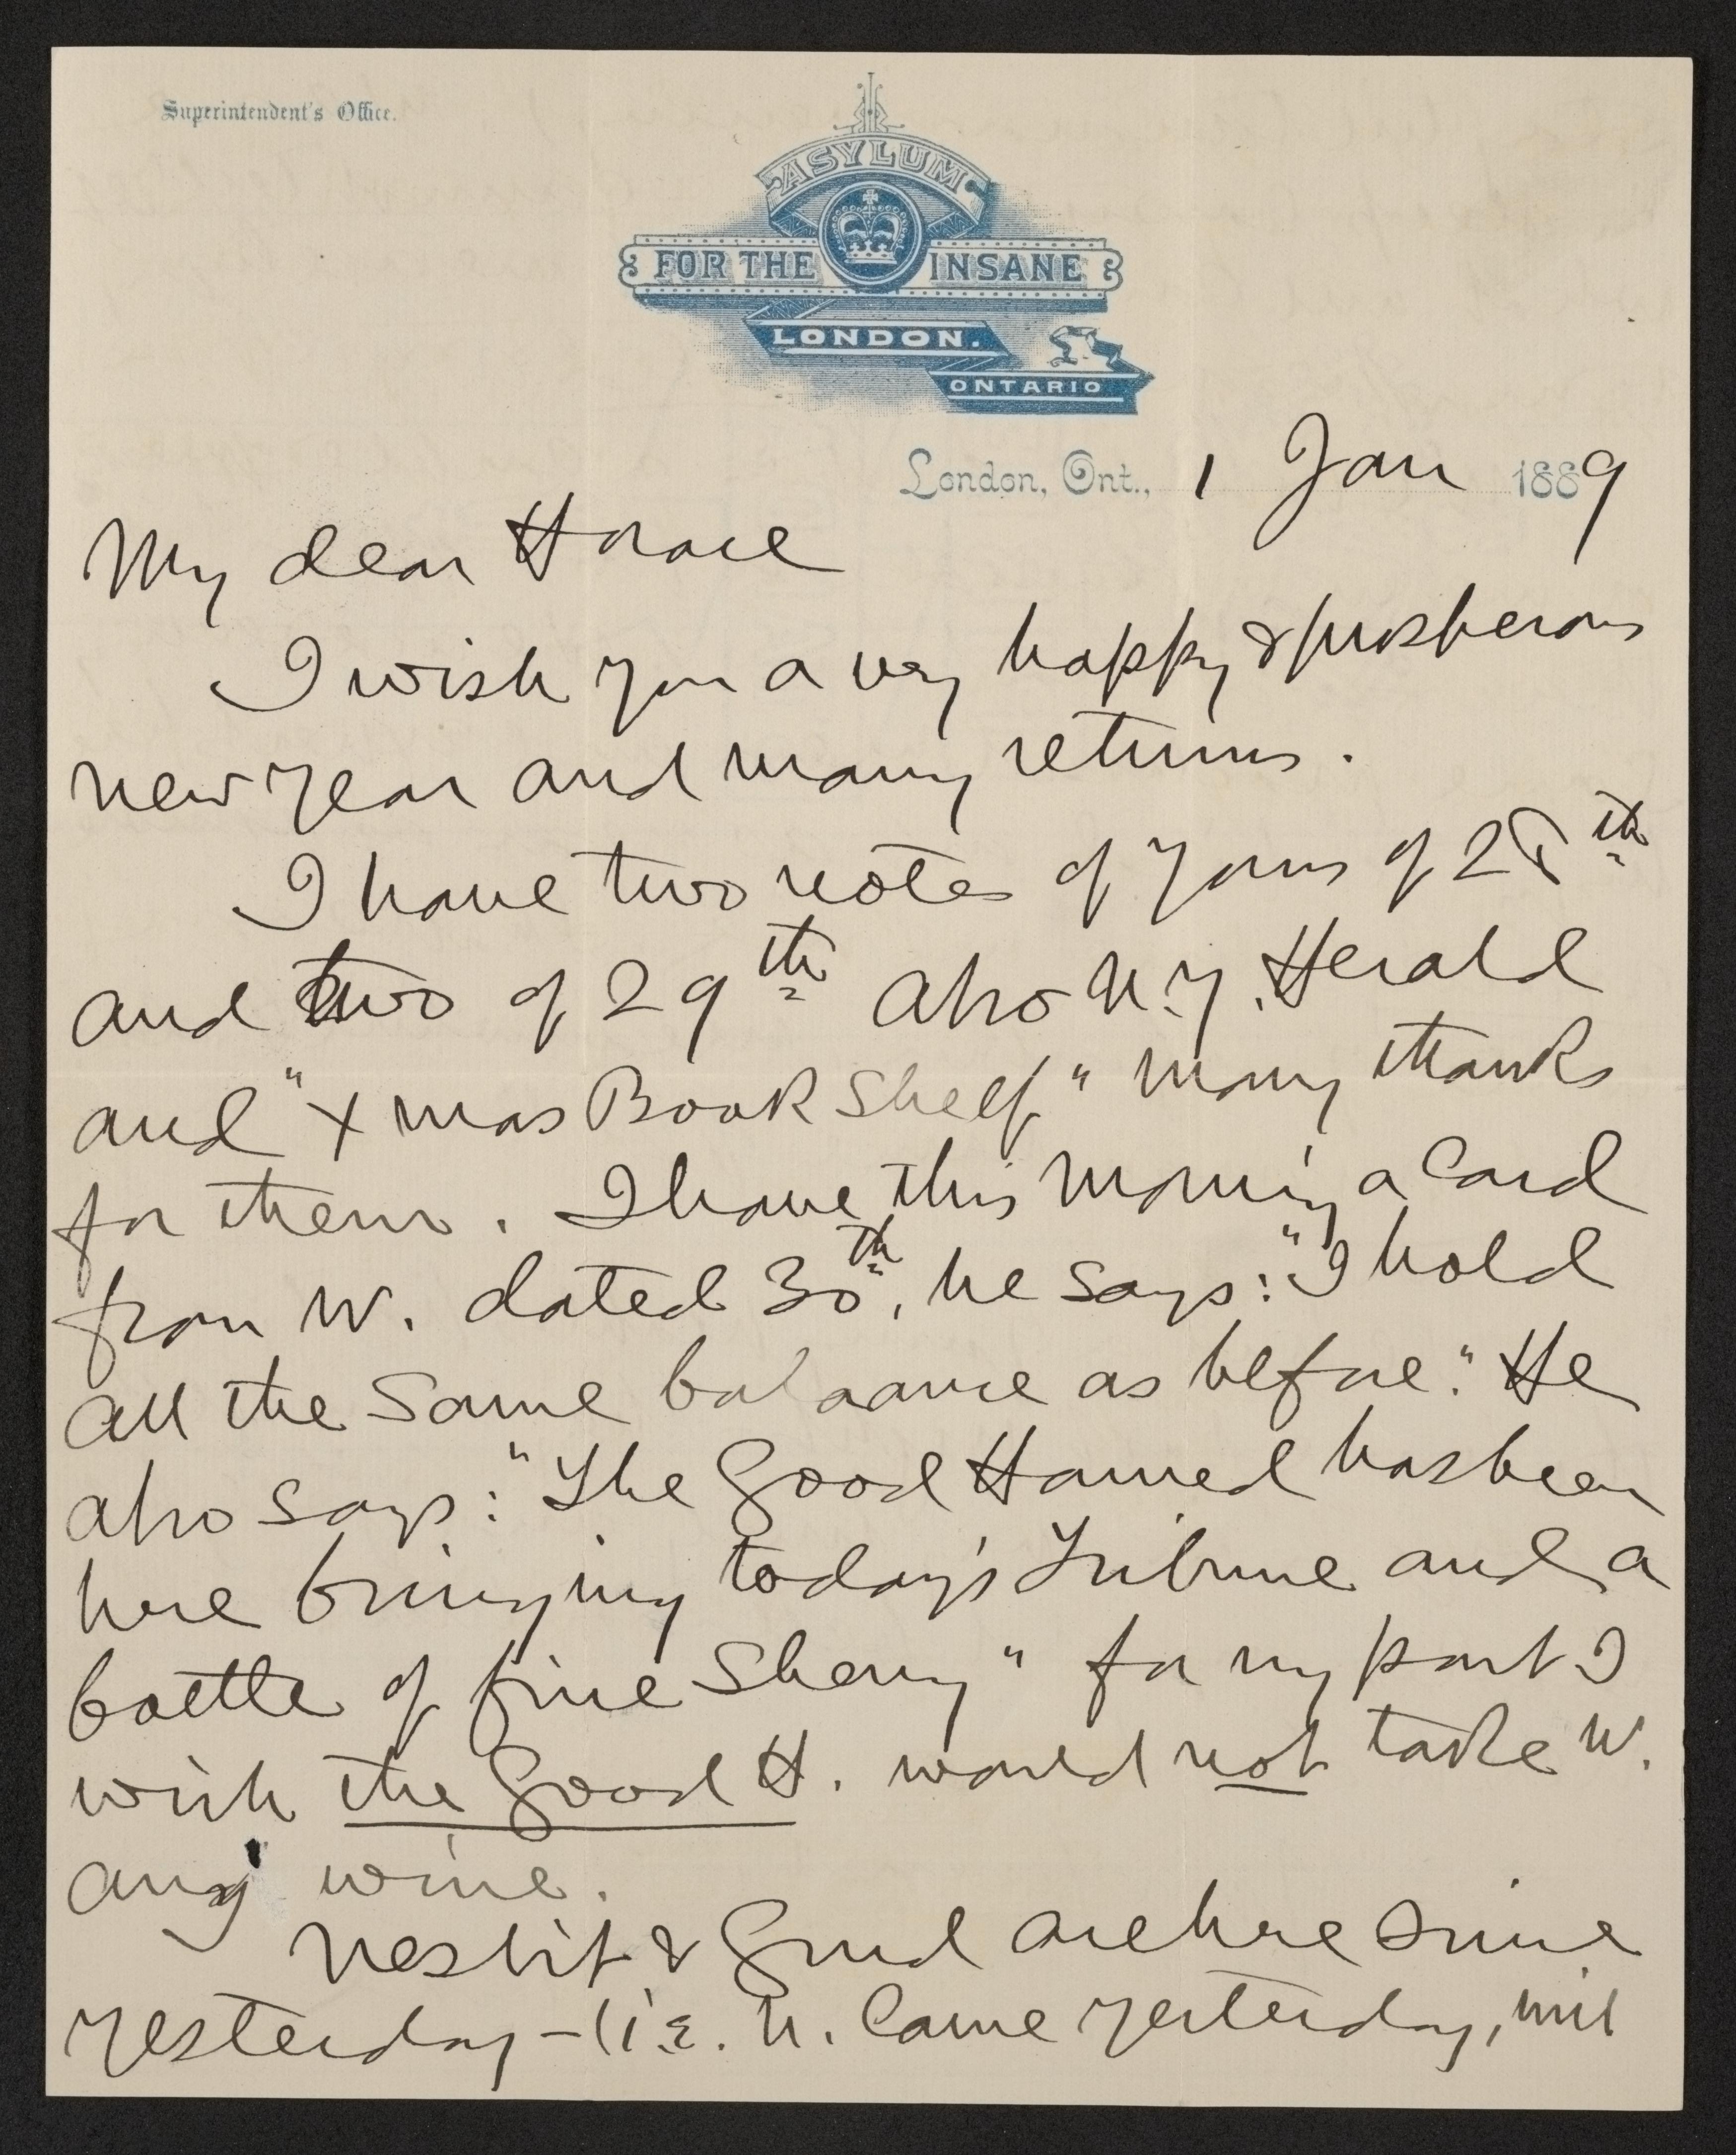 Superintendent's Office.
ASYLUM
FOR THE INSANE
LONDON.
ONTARIO
London, Ont., 1 Jan 1889
My dear Horace
I wish you a very happy & prosperous
new year and many returns.
I have two notes of yours of 28th
and two of 29th also N.Y. Herald
and "Xmas Book Shelf" many thanks
for them. I have this morning a card
from W. dated 30th, he says: "I hold
all the same balaance as before." He
also says: "The good Harned has been
here bringing today's Tribune and a
bottle of fine Sherry" for my part I
wish the good H. would not take W.
any wine.
Nesbit & Gurd are here since
yesterday – (i.e. N. came yesterday, will